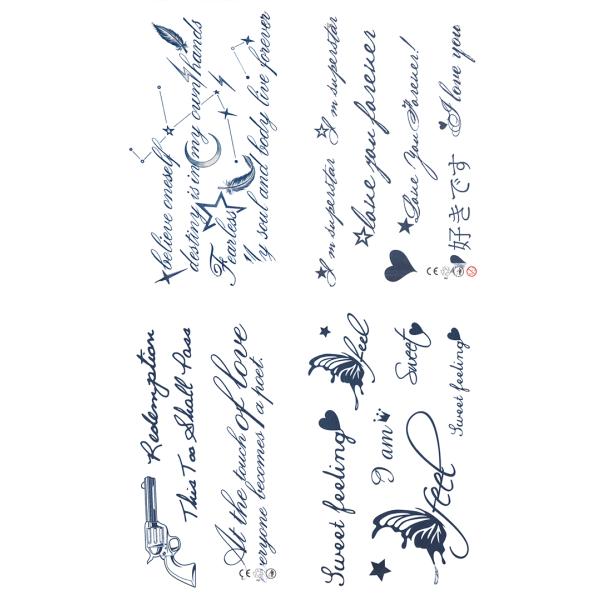 believe oneself
destiny is in my own hands
Fearless
My soul and body live forever
I m superstar
I m superstar
love you forever
Love You Forever!
好きです
I love you
CE
Redemption
This Too Shall Pass
At the touch of love
eryone becomes a poet.
CE
feel
Sweet
Sweet feeling
Sweet feeling
I am
feel